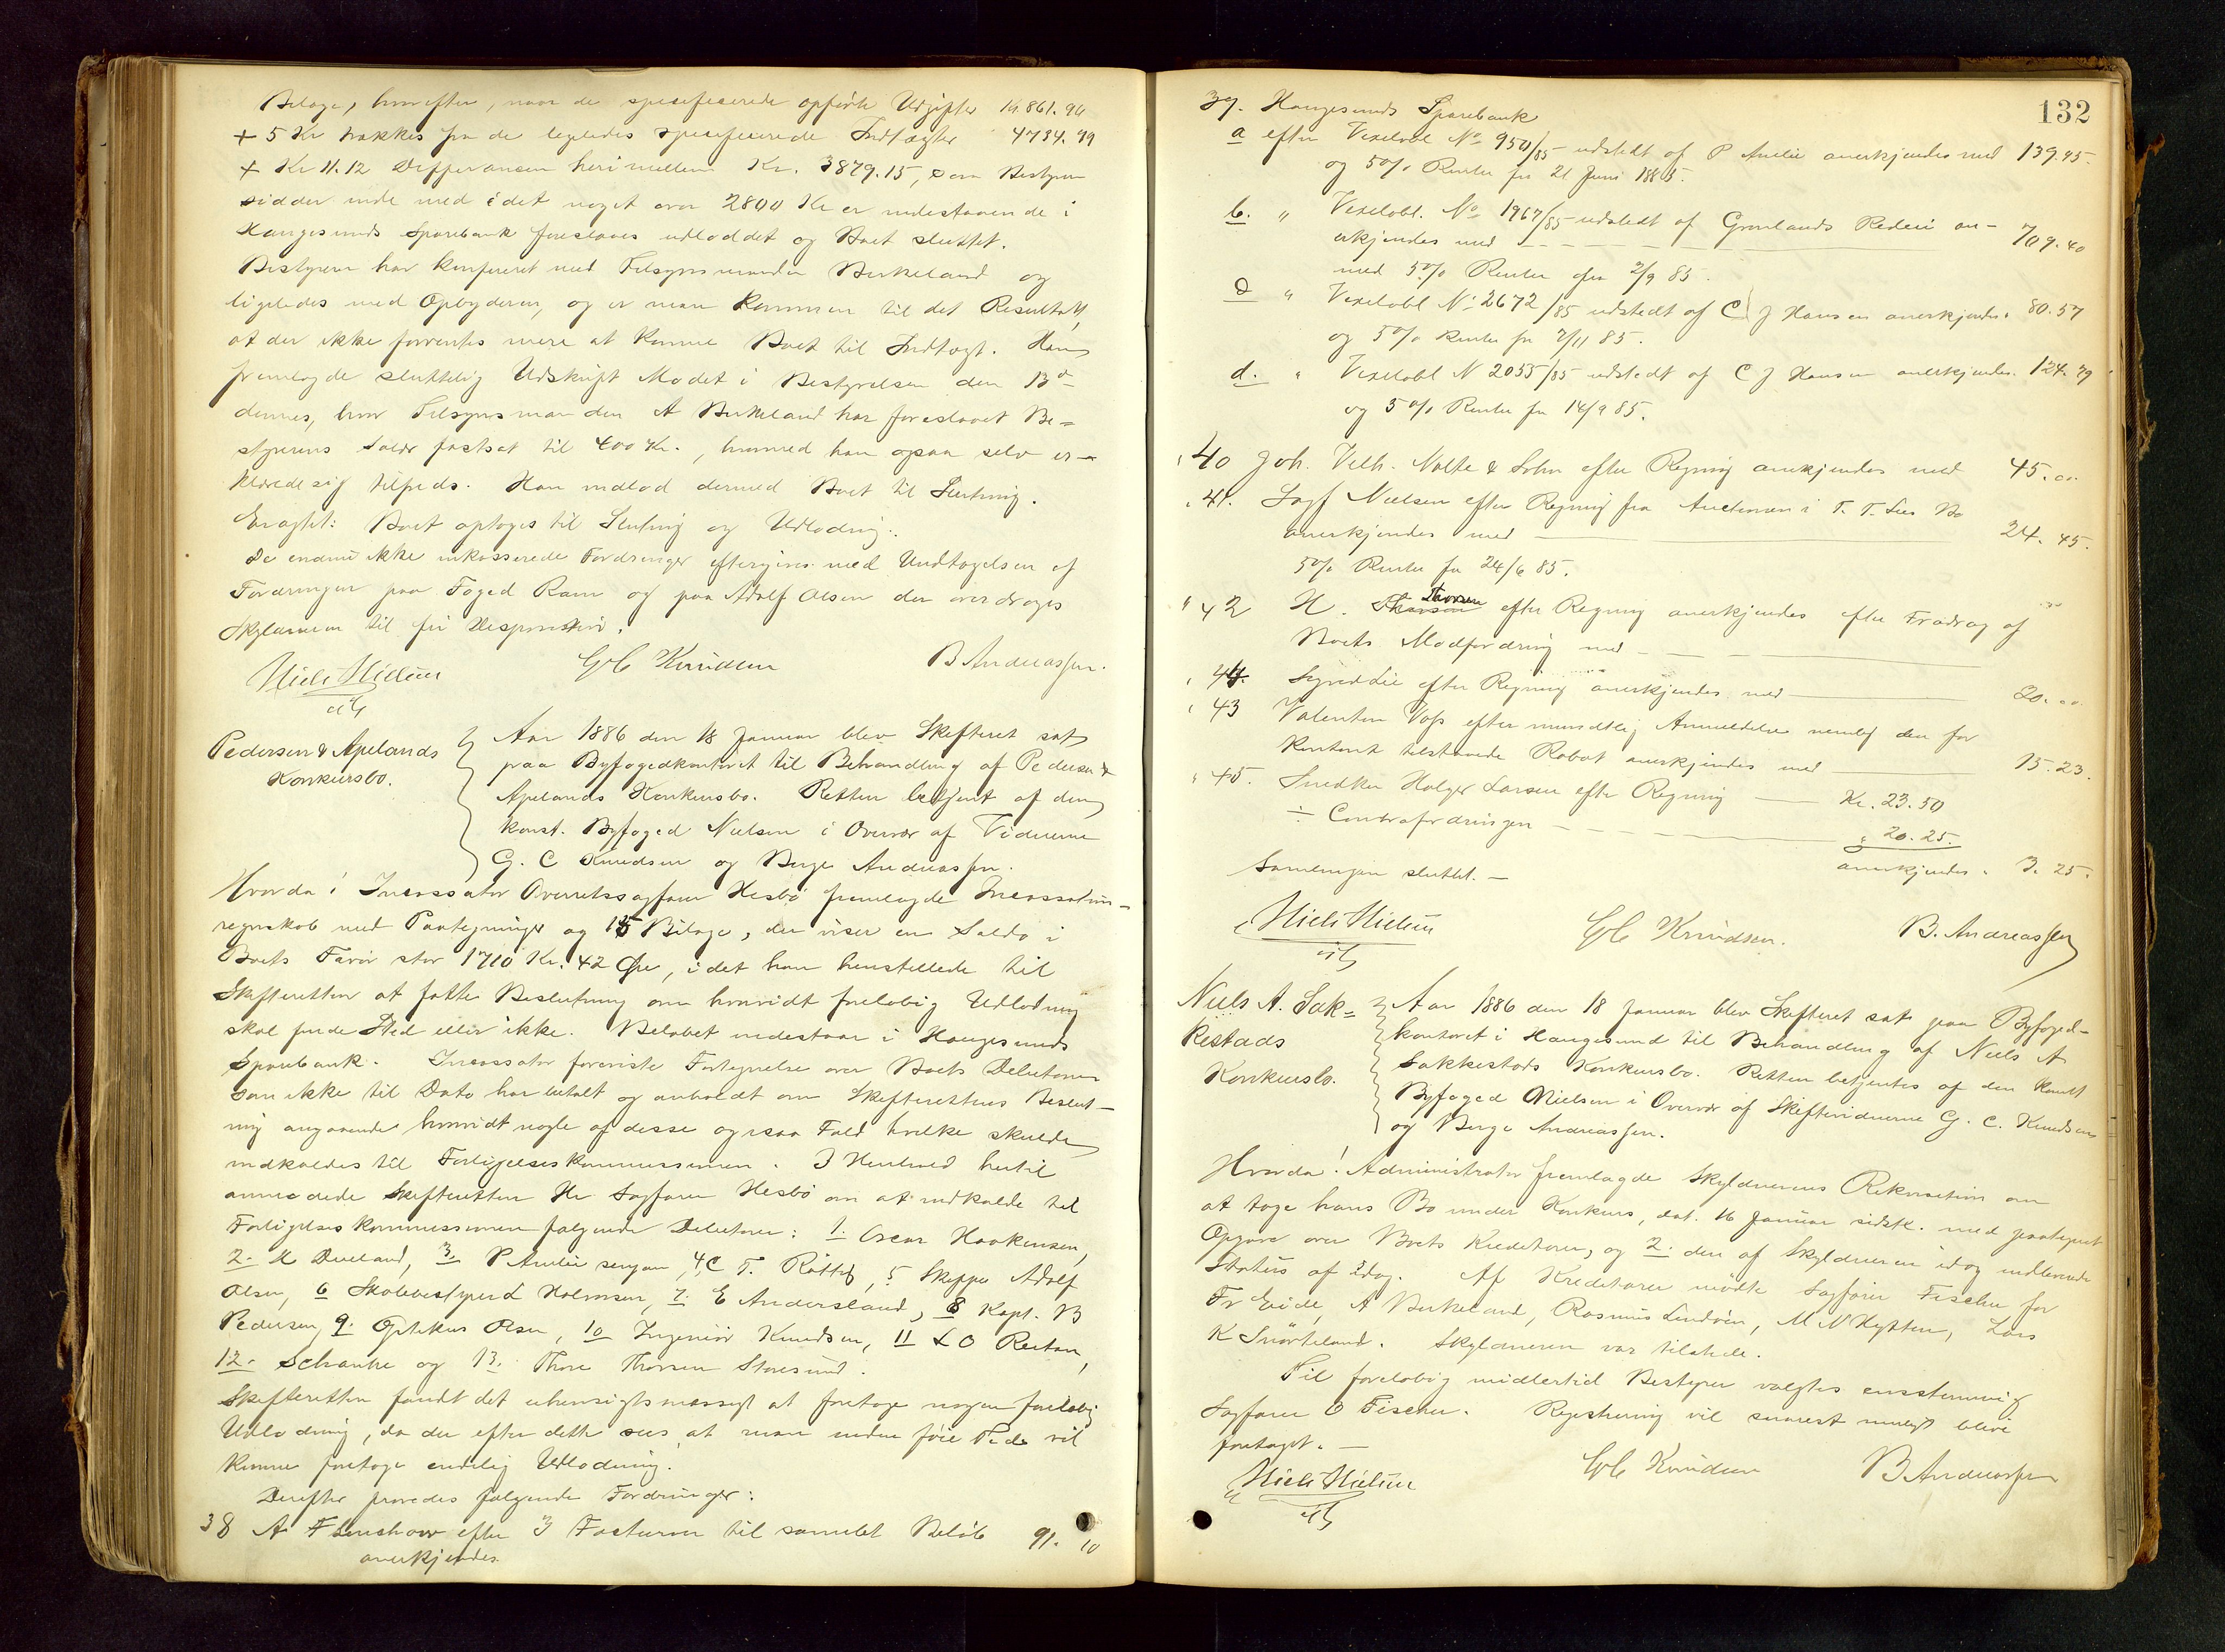 Bilage, hvorefter, naar de specificerede opførte Udgifter 14861.94
+ 5 Kr trækkes fra de ligeledes specificerede Indtægter 4734.99
+ Kr 11.12 Differancen herimellem Kr. 3879.15, som Bestyren
sidder inde med idet noget over 2800 Kr er indestaaende i
Haugesunds Sparebank foreslaaes udloddet og Boet sluttet.
Bestyren har konfereret med Tilsynsmanden Birkeland og
ligeledes med Opbyderen, og er man kommen til det Resultat,
at der ikke forventes mere at komme Boet til Indtægt. Han
fremlagde sluttelig Udskrift Mødet i Bestyrelsen den 13de
dennes, hvor Tilsynsmanden A Birkeland har foreslaaet Be-
styrerens Salær fastsat til 400 Kr., hvormed han ogsaa selv er-
klærede sig tilfreds. Han indlod dermed Boet til Slutning.
Eragtet: Boet optoges til Slutning og Udlodning.
De endnu ikke inkasserede Fordringer eftergives med Undtagelsen af
Fordringen paa Foged Ram og paa Adolf Olsen der overdrages
Skyldneren til fri Disposition.
Niels Nielsen GC Knudsen B Andreassen.
cst
Pedersen & Apelands
Konkursbo.
Aar 1886 den 18 Januar blev Skifteret sat
paa Byfogedkontoret til Behandling af Pedersen &
Apelands Konkursbo. Retten betjent af den
konst. Byfoged Nielsen i Overvær af Vidnerne
G. C Knudsen og Berge Andreassen.
Hvorda! Incassator Overretssagfører Hesbø fremlagde Incassations-
regnskab med Paategninger og 15 Bilage, der viser en Saldo i
Boets Favør stor 1710 Kr. 42 Øre, idet han henstillede til
Skifteretten at fatte Beslutning om hvorvidt foreløbig Udlodning
skal finde Sted eller ikke. Beløbet indestaar i Haugesunds
Sparebank. Incassator foreviste Fortegnelse over Boets Debitorer
som ikke til Dato har betalt og anholdt om Skifterettens Beslut-
ning angaaende hvorvidt nogle af disse og isaa Fald hvilke skulde
indkaldes til Forligelseskommissionen. I Henhold hertil
anmodede Skifteretten Hr Sagfører Hesbø om at indkalde til
Forligelseskommissionen følgende Debitorer: 1. Oscar Haakensen,
2. M Dueland, 3. P Amlie sergeant, 4 C T. Røtted, 5 Skipper Adolf
Olsen, 6 Skolebestyrer L Halvorsen, 7. E Andersland, 8 Kapt. B
Pedersen, 9. Optikus Olsen, 10 Ingeniør Knudsen, 11 L O Reitan,
12. Schanke og 13. Thore Thorsen Storesund.
Skifteretten fandt det uhensigtsmæssigt at foretage nogen foreløbig
Udlodning, da der efter dette sees, at man inden føie Tid vil
kunne foretage endelig Udlodning.
Derefter prøvedes følgende Fordringer:
38 A Flinshow efter 3 Facturer til samlet Beløb 91.10
anerkjendes
132
39. Haugesunds Sparebank
a efter Vexelobl No 950/85 udstedt af P Amlie anerkjendes med 139.95.
og 5% Renter fra 21 Juni 1885.
b. " Vexelobl. No 1967/85 udstedt af Grønlands Rederi an-
erkjendes med 709.40
med 5% Renter fra 2/9 85.
c " Vexelobl No 2672/85 udstedt af C J Hansen anerkjendes. 80.57
og 5% Renter fra 7/11 85.
d. " Vexelobl N 2055/85 udstedt af C J Hansen anerkjendes. 124.79
og 5% Renter fra 14/9 85.
" 40 Joh. Vilh. Nolte & Sohn efter Regning anerkjendes med 45.00
" 41. Sagf Nielsen efter Regning fra Auctionen i T. T. Lies Bo
anerkjendes med 24.45.
5% Renter fra 24/6 85.
" 42 H. Thorsen efter Regning anerkjendes efter Fradrag af
Boets Modfordring med
" 44. Sigrid Lie efter Regning anerkjendes med 20.00
" 43 Valentin Voss efter mundtlig Anmeldelse nemlig den for
Kontant tilstaaede Rabat anerkjendes med 15.23.
" 45. Snedker Holger Larsen efter Regning Kr. 23.50
÷ Contrafordringen " 20.25.
anerkjendes. 3.25.
Samlingen sluttet. —
Niels Nielsen GC Knudsen. B. Andreassen
cst
Niels A. Sak-
kestads
Konkursbo.
Aar 1886 den 18 Januar blev Skifteret sat paa Byfoged-
kontoret i Haugesund til Behandling af Niels A
Sakkestads Konkursbo. Retten betjentes af den konst
Byfoged Nielsen i Overvær af Skiftevidnerne G. C. Knudsen
og Berge Andreassen.
Hvorda! Administrator fremlagde Skyldnerens Rekvisition om
at tage hans Bo under Konkurs, dat. 16 Januar sidstl. med paategnet
Opgave over Boets Kreditorer, og 2. den af Skyldneren idag indleverede
Status af idag. Af Kreditorer mødte Sagfører Fischer for
Fr Eide, A Birkeland, Rasmus Lindøen, M N Nyttun, Lars
K Snørteland. Skyldneren var tilstede.
Til foreløbig midlertid Bestyrer valgtes enstemmig
Sagfører O Fischer. Registrering vil snarest muligt blive
foretaget. —
Niels Nielsen GC Knudsen B Andreassen
cst